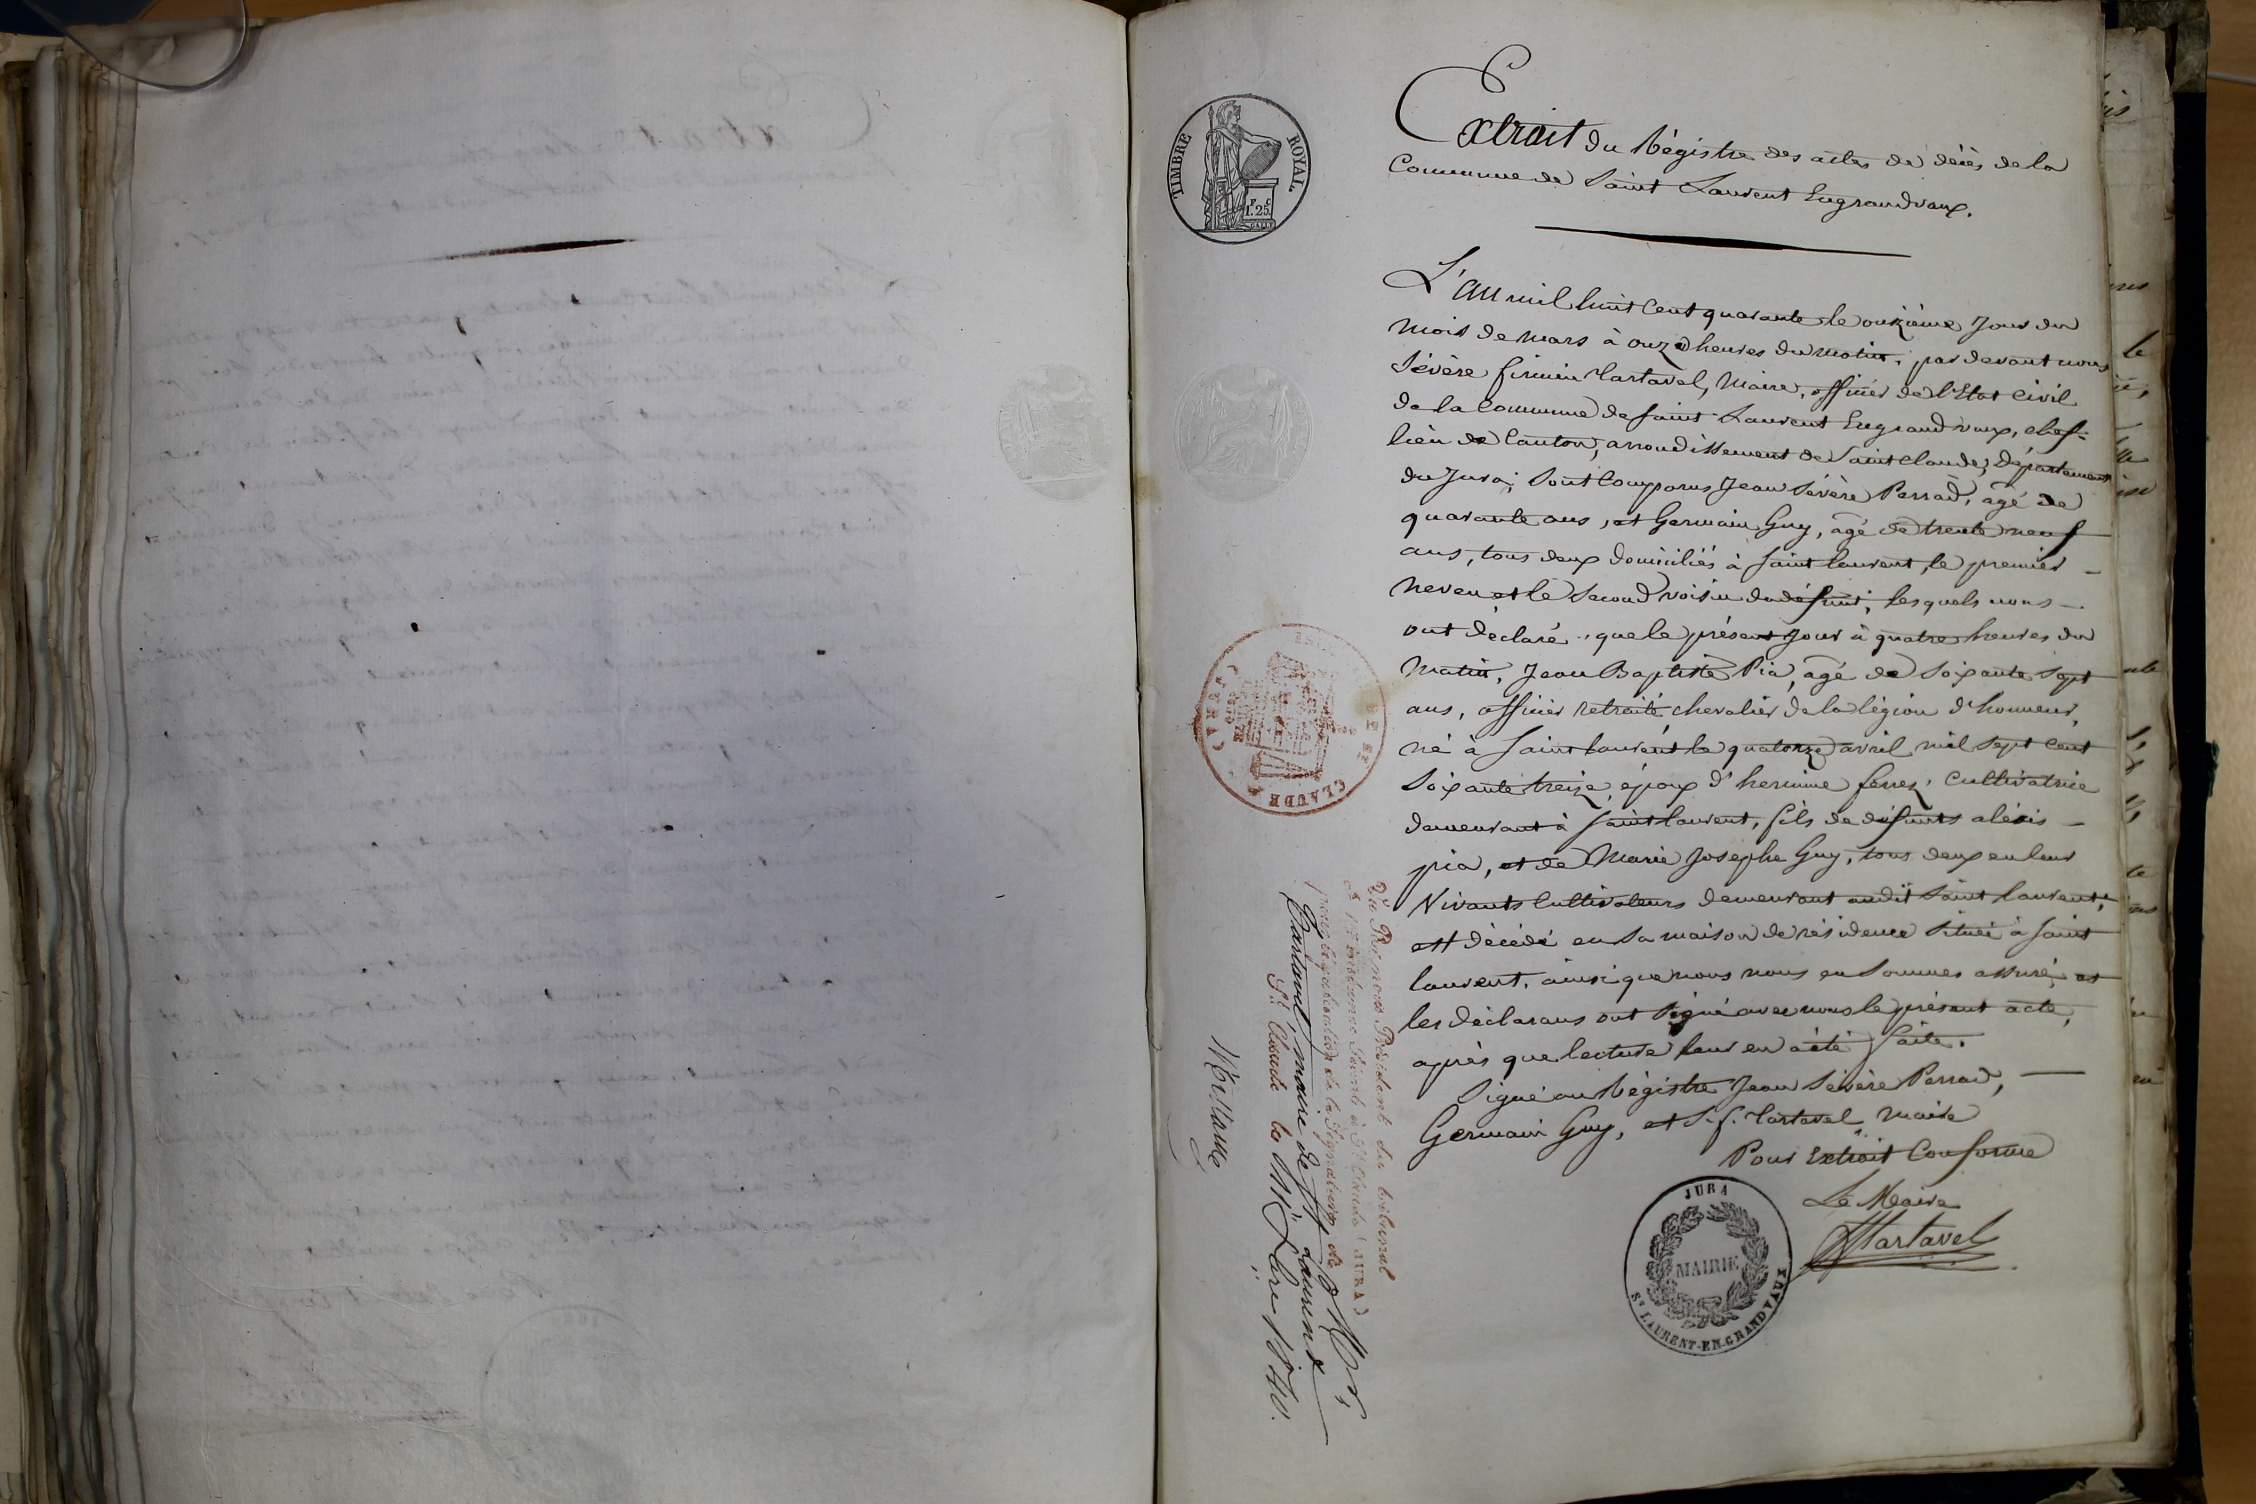 TIMBRE ROYAL.
F. C.
1. 25.
Extrait du Régistre des actes de décès de la
Commune de Saint Laurent Engrandvaux.
L'an mil huit cent quarante le onzième jour du
mois de mars à onze heures du matin, par devant nous
Sévère firmin Martavel, Maire, officier de l'Etat Civil
de la Commune de Saint Laurent Engrandvaux, chef-
lieu de Canton, arrondissement de Saint Claude, Département
du Jura; Sont Comparus Jean Sévère Perrad, agé de
quarante ans, et Germain Guy, agé de trente neuf
ans, tous deux domiciliés à Saint laurent, le premier
neveu et le Second voisin du défunt, lesquels nous
ont déclaré, que le présent jour à quatre heures du
Matin, Jean Baptiste Pia, agé de Soixante Sept
ans, officier retraité, chevalier de la légion d'honneur,
né à Saint laurent le quatorze avril mil Sept Cent
Soixante treize, époux d'hermine ferrez, Cultivatrice
demeurant à Saint laurent, fils de défunts aléxis
pia, et de Marie Josephe Guy, tous deux en leur
Vivants Cultivateurs demeurant audit Saint laurent,
est décédé en Sa maison de résidence Située à Saint
laurent, ainsi que nous nous en Sommes assuré, et
les déclarans ont Signé avec nous le présent acte,
après que lecture leur en a été faite.
Signé au Régistre Jean Sévère Perrad,
Germain Guy, et S. f. Martavel Maire
Pour Extrait Conforme
Le Maire
Martavel
JURA
MAIRIE
St. LAURENT-EN-GRANDVAUX
CLAUDE
(JURA)
Vu Par nous Président du tribunal
de 1re instance Séant à St. Claude (JURA)
pour légalisation de la Signature de Mr.
Martavel, maire de St Laurent
St. Claude le 1840.